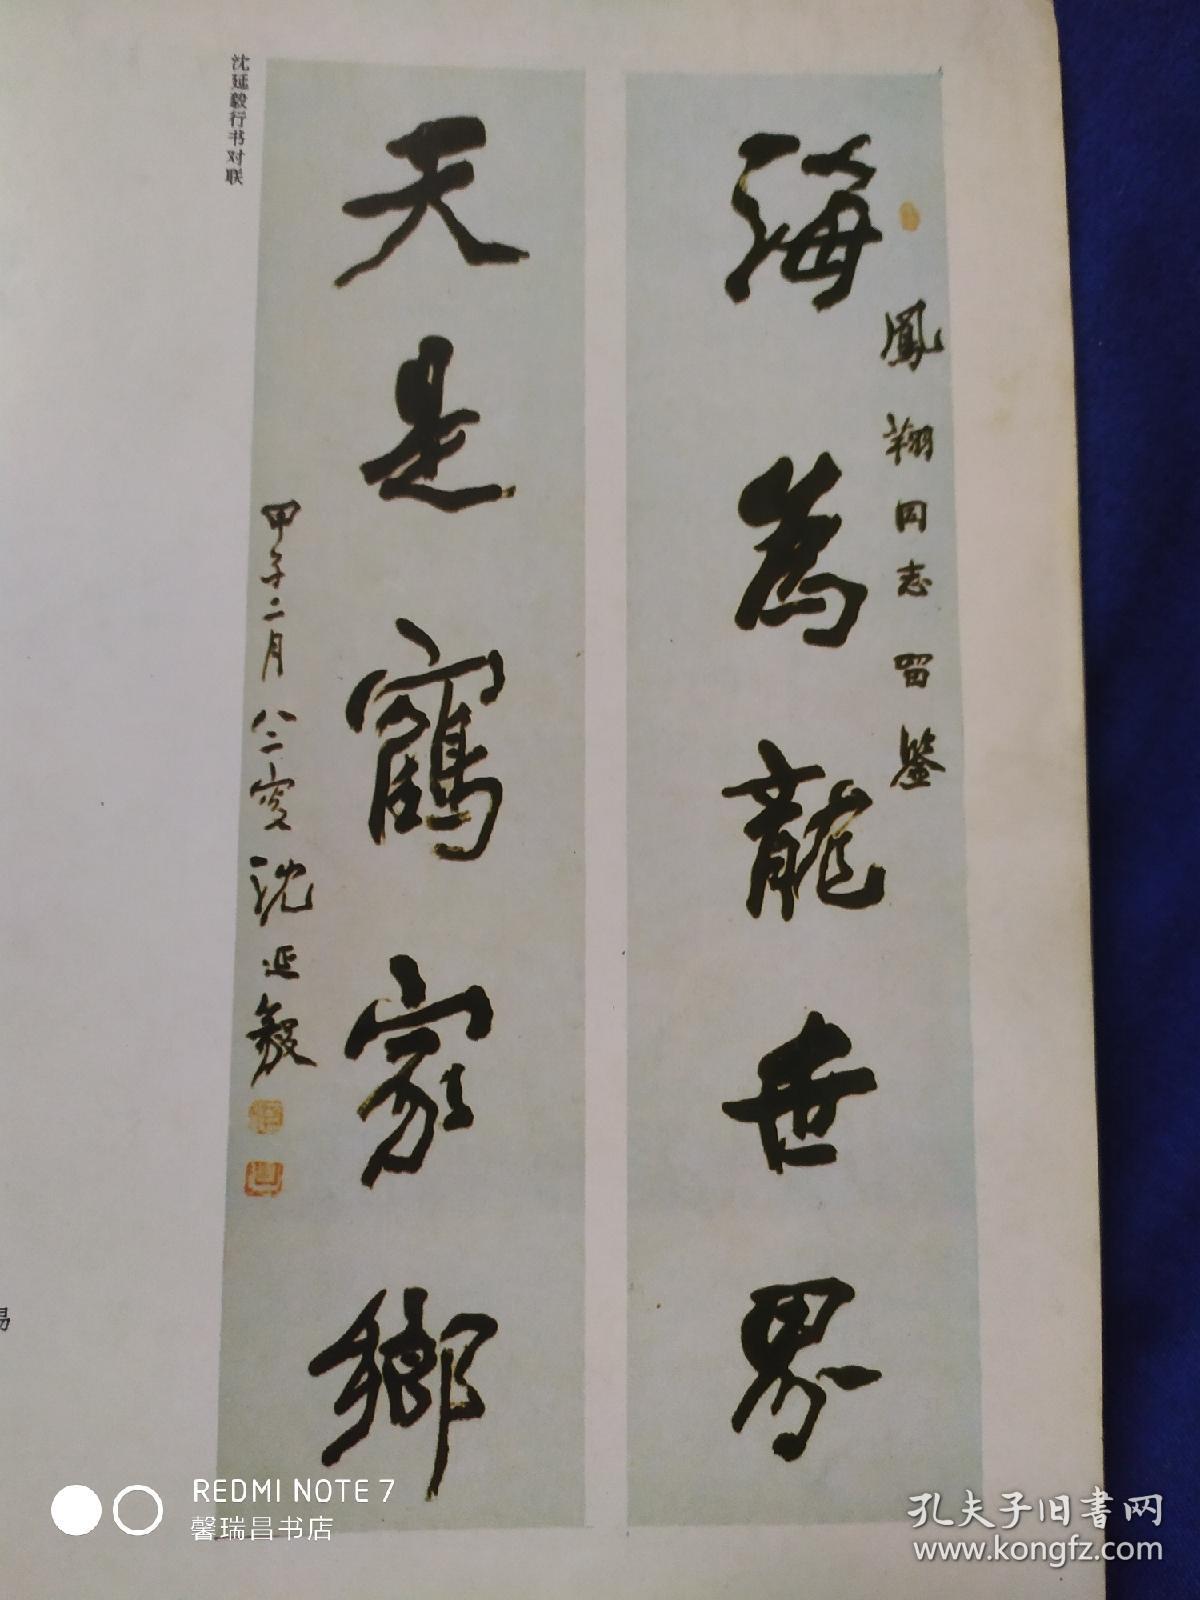 鳳翔同志留鑒
海為龍世界
天是鶴家鄉
甲子二月八二叟沈延毅
沈延毅行书对联
REDMI NOTE 7
馨瑞昌书店
孔夫子旧书网
www.kongfz.com